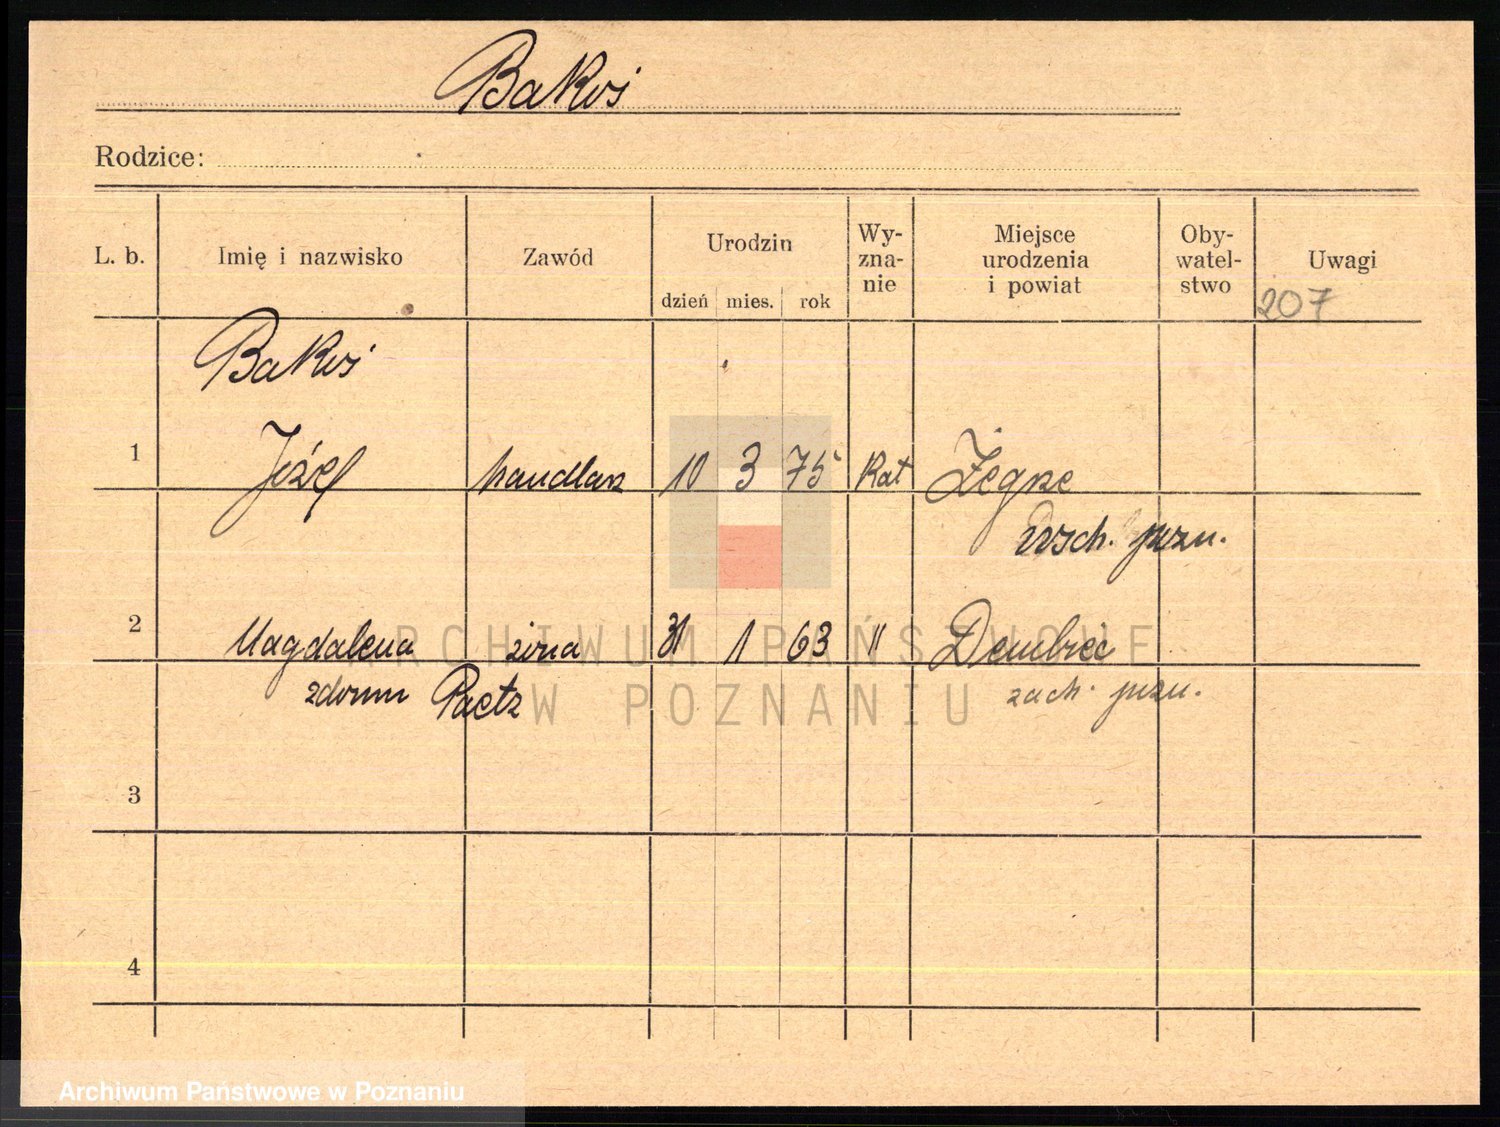 Bakoś
Rodzice:
L. b. Imię i nazwisko Zawód Urodzin dzień mies. rok Wy-zna-nie Miejsce urodzenia i powiat Oby-watel-stwo Uwagi
207
Bakoś
1 Józef handlarz 10 3 75 Kat Żegrze
wsch. pozn.
2 Magdalena żona 31 1 63 " Dembiec
zdomu Paetz zach. pozn.
3
4
ARCHIWUM PAŃSTWOWE
W POZNANIU
Archiwum Państwowe w Poznaniu